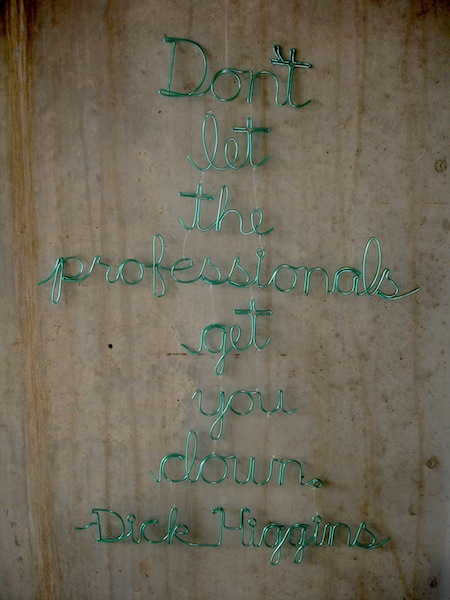 Don't
let
the
professionals
get
you
down.
-Dick Higgins